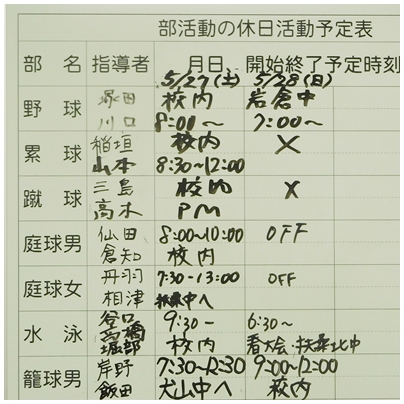 部活動の休日活動予定表
部 名 指導者 月日 開始終了予定時刻
5/27(土) 5/28(日)
野 球 塚田 校内 岩倉中
川口 8:00〜 7:00〜
累 球 稲垣 校内 ×
山本 8:30〜12:00
蹴 球 三島 校内 ×
高木 PM
庭球男 仙田 8:00〜10:00 OFF
倉知 校内
庭球女 丹羽 7:30-13:00 OFF
相津 扶桑中へ
水 泳 谷口 9:30- 6:30〜
高橋
堀部 校内 春大会・扶桑北中
籠球男 岸野 7:30〜12:30 9:00〜12:00
飯田 犬山中へ 校内